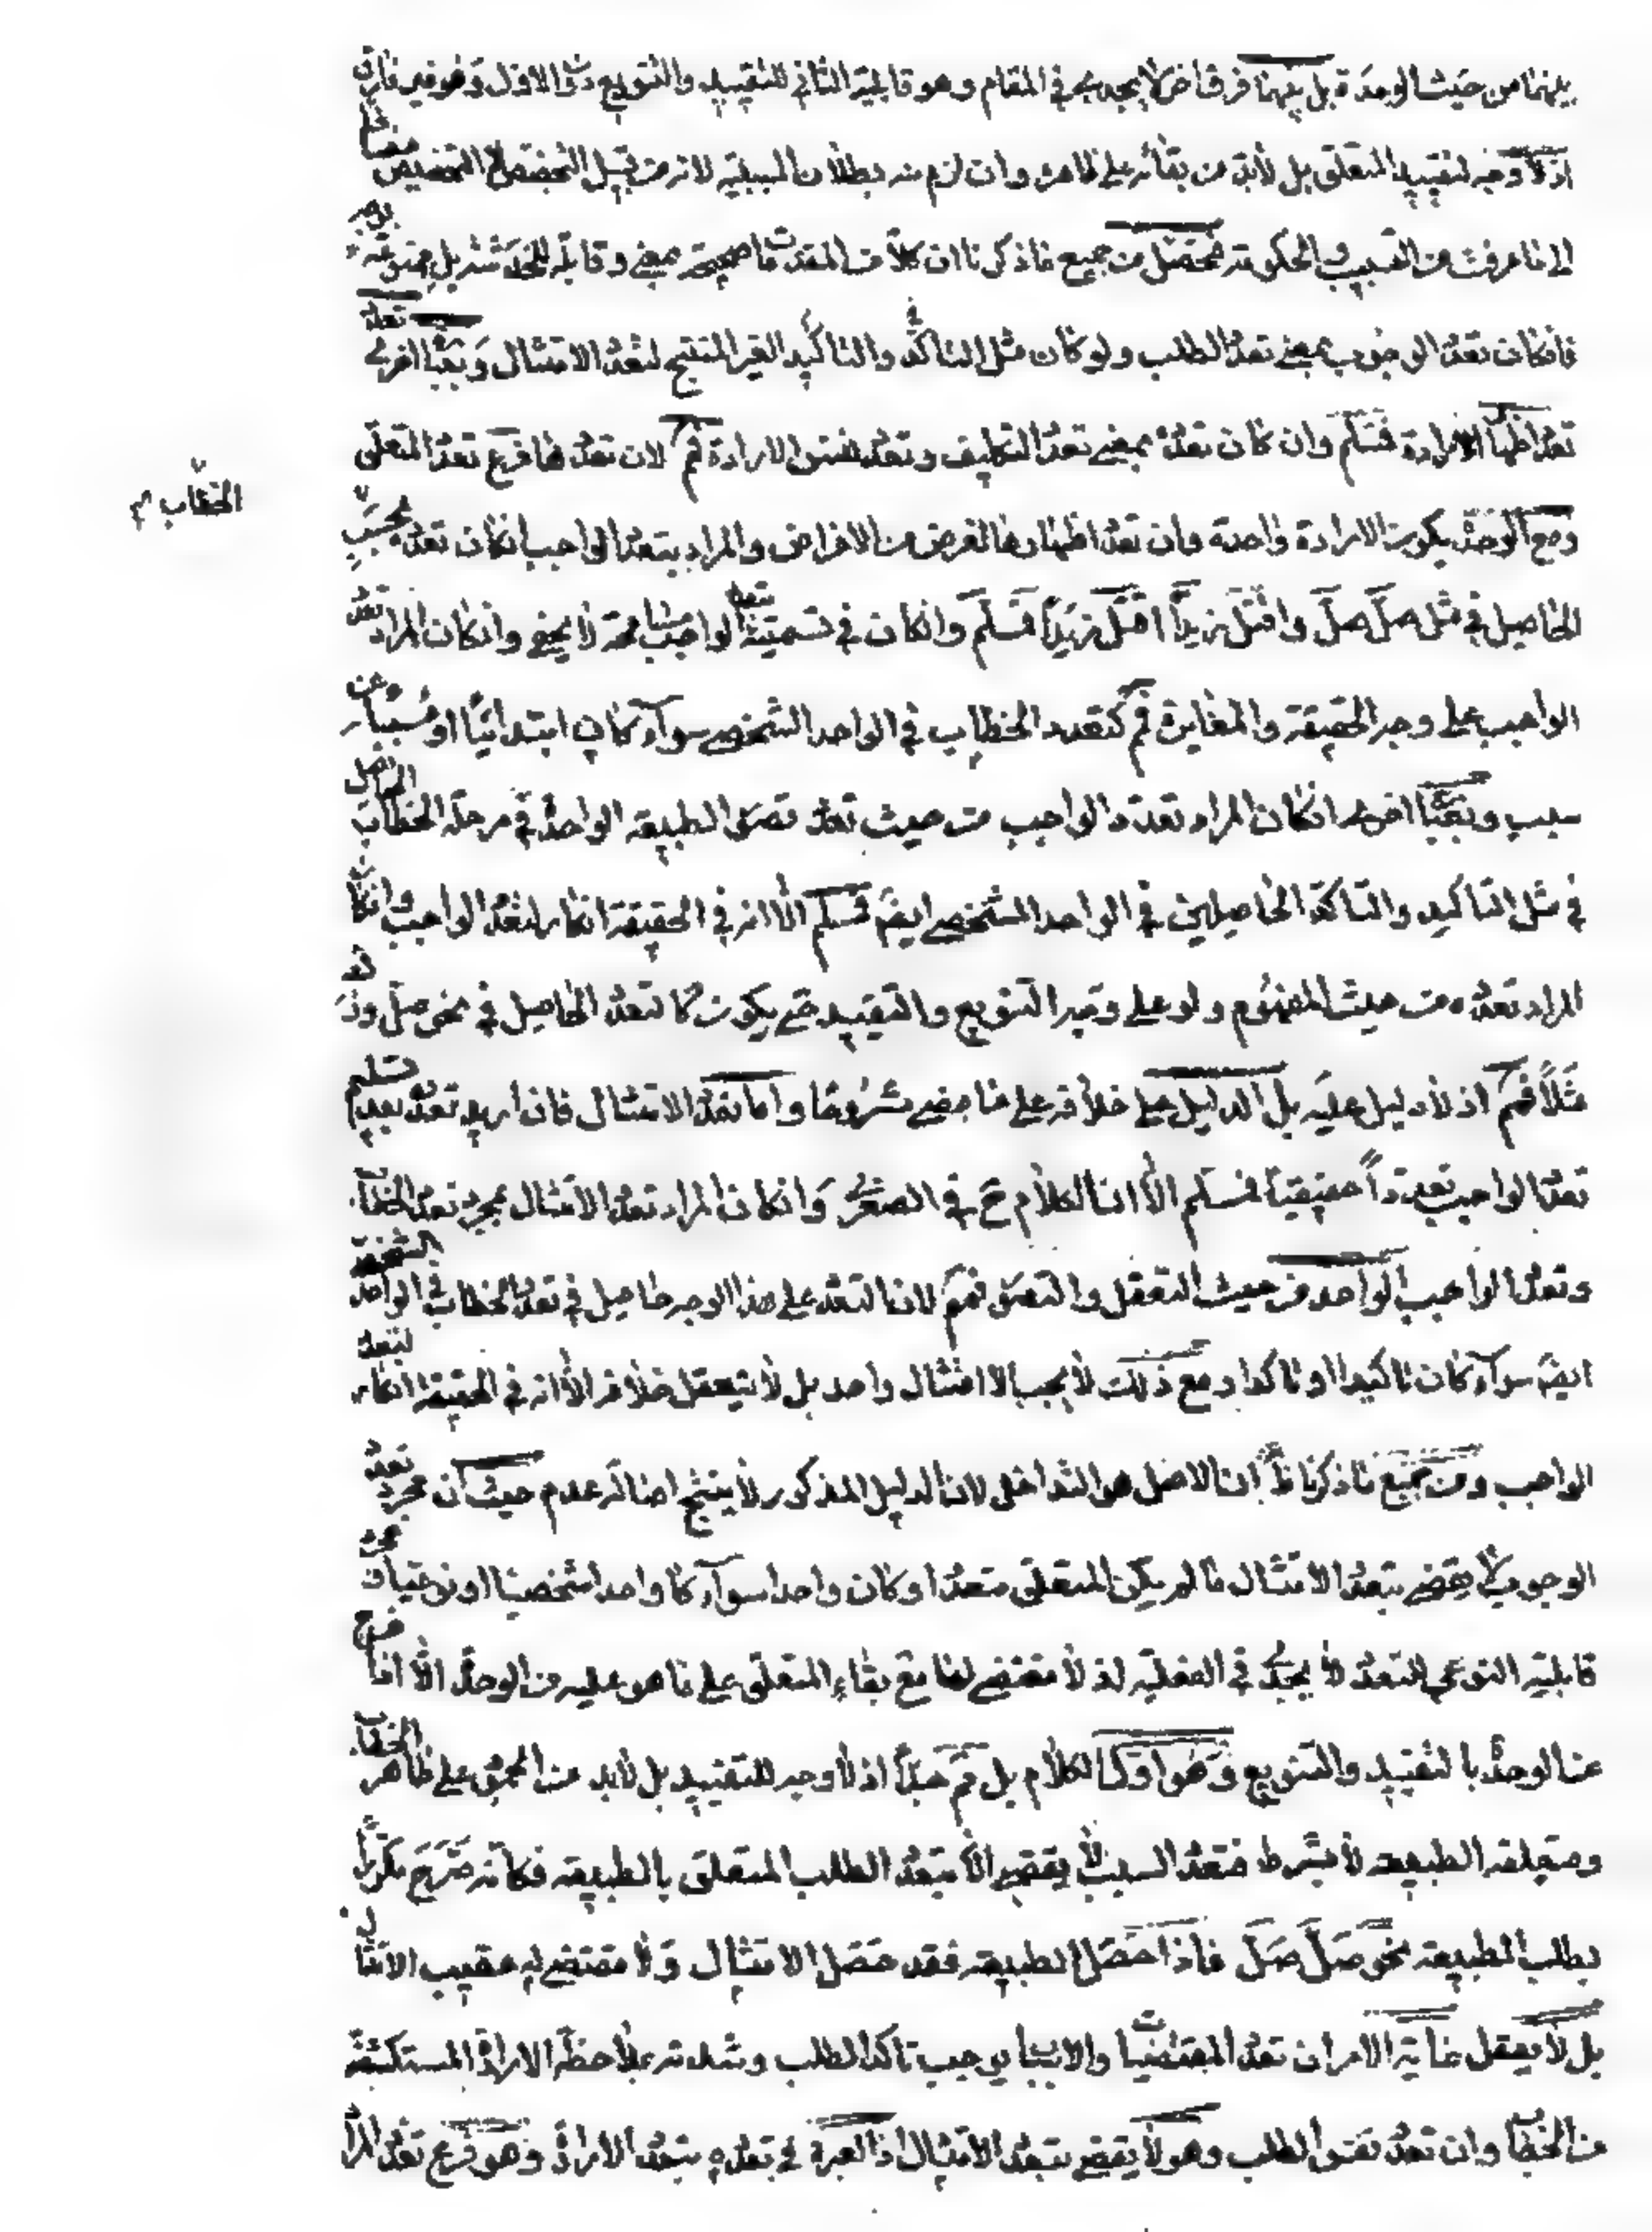 بينهما من حيث الوحدة بل بينهما فرق اخر لا يجدى في المقام وهو قابلية الثاني للتقييد والتنويع دون الاول وهو غير فارق
اذ لا وجه لتقييد المتعلق بل لا بد من بقائه على ظاهره وان لزم منه بطلان السببية لانه من قبيل التخصص لا التخصيص مضافا
الى ما عرفت من التسبيب والحكومة فمحصل من جميع ما ذكرنا ان كلا من المقدمات صحيحة بمعنى وقابلة للخدشة بل ممنوعة بوجه
فان كان تعدد الوجوب بمعنى تعدد الطلب ولو كان مثل التاكد والتاكيد الغير المنتج لتعدد الامتثال وبعبارة اخرى تعدد
تعدد اظهار الارادة فمسلم وان كان تعدده بمعنى تعدد التكليف وتعدد نفس الارادة فمم لان تعددها فرع تعدد المتعلق
ومع الوحدة يكون الارادة واحدة وان تعدد اظهارها لغرض من الاغراض والمراد بتعدد الواجب ان كان تعدده بحسب
الخطاب م
الحاصل في مثل صل صل واقتل زيدا اقتل زيدا فمسلم وان كان في تسميته تعدد الواجب مسامحة لا يخفى وان كان المراد تعدد
الواجب على وجه الحقيقة والمغايرة فمم كتعدد الخطاب في الواحد الشخصي سواء كان ابتدائيا او مسببا عن
سبب وبعبارة اخرى ان كان المراد تعدد الواجب من حيث تعدد تصور الطبيعة الواحدة في مرحلة الخطاب الحاصل
في مثل التاكيد والتاكد الحاصلين في الواحد الشخصي ايضم فمسلم الا انه في الحقيقة انكار لتعدد الواجب وان كان
المراد تعدده من حيث المفهوم ولو على وجه التنويع والتقييد حتى يكون كالتعدد الحاصل في نحو صل وزك
مثلا فمم اذ لا دليل عليه بل الدليل على خلافه على ما مضى مشروحا واما تعدد الامتثال فان اريد تعدده بعد تسليم
تعدد الواجب تعددا حقيقيا فمسلم الا ان الكلام ح في الصغرى وان كان المراد تعدد الامتثال بمجرد تعدد الخطاب
وتعدد الواجب الواحد من حيث التعقل والتصور فمم لان التعدد على هذا الوجه حاصل في تعدد الخطاب في الواحد الشخصي
ايضم سواء كان تاكيدا او تاكدا ومع ذلك لا يجب الا امتثال واحد بل لا يتعقل خلافه الا انه في الحقيقة انكار لتعدد
الواجب ومن جميع ما ذكرنا ان الاصل هو التداخل لان الدليل المذكور لا ينتج اصالة عدم حيث ان مجرد تعدد
الوجوب لا يقتضي بتعدد الامتثال ما لم يكن المتعلق متعددا وكان واحدا سواء كان واحدا شخصيا او نوعيا
قابلية النوعي للتعدد لا يجدى في الفعلية اذ لا مقتضي لها مع بقاء المتعلق على ما هو عليه من الوحدة الا
عن الوحدة بالتقييد والتنويع وهو اول الكلام بل مم جدا اذ لا وجه للتقييد بل لا بد من على ظاهر الخطاب
ومتعلقه الطبيعة لا بشرط فتعدد السبب لا يقتضي الا بتعدد الطلب المتعلق بالطبيعة فكانه صرح مكررا
بطلب الطبيعة نحو صل صل فاذا حصل الطبيعة فقد حصل الامتثال ولا مقتضي له عقيب الامتثال
بل لا يعقل غاية الامر ان تعدد المقتضيات والاسباب يوجب تاكد الطلب وشدته بملاحظة الارادة المستكشفة
من الخطاب وان تعدد نفس الطلب وهو لا يقتضي بتعدد الامتثال اذ العبرة في تعدده بتعدد الارادة وهو فرع تعدد المراد